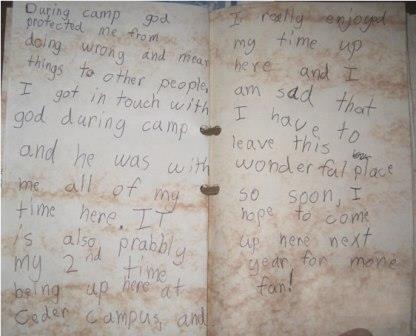 During camp god
protected me from
doing wrong and mean
things to other people,
I got in touch with
god during camp
and he was with
me all of my
time here. IT
is also prabbly
my 2nd time
being up here at
Ceder campus, and
I really enjoyed
my time up
here and I
am sad that
I have to
leave this
wonderful place
so soon, I
hope to come
up here next
year for more
fun!